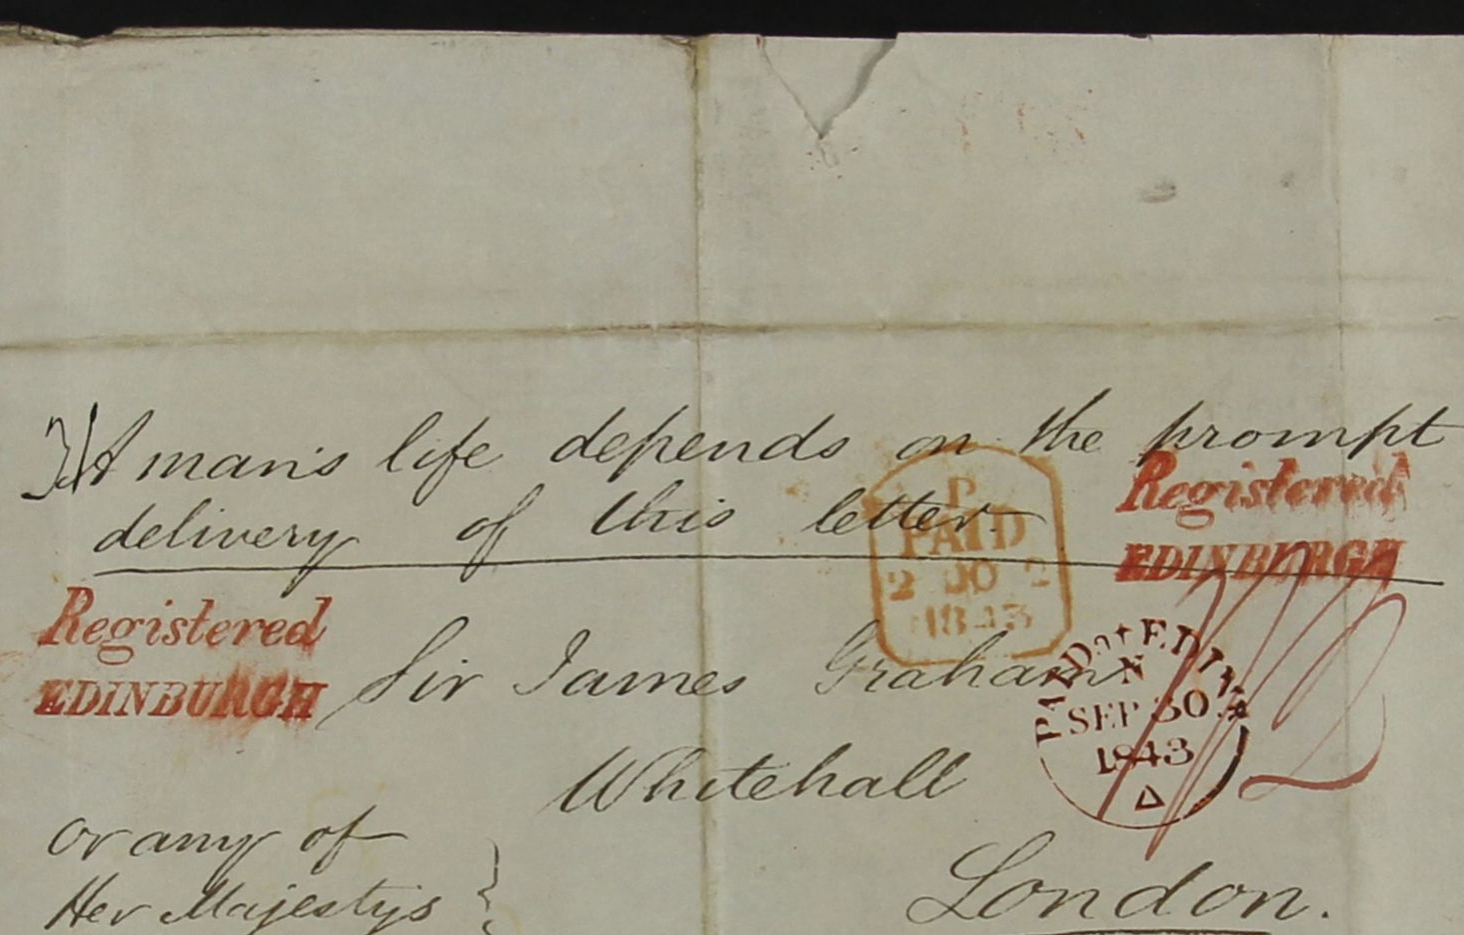 A man's life depends on the prompt
delivery of this letter
Registered
EDINBURGH
P
PAID
2 JO 2
1843
Registered
EDINBURGH
Sir James Graham
PAID at EDINR
N
SEP 30
1843
Whitehall
London.
or any of
Her Majestys